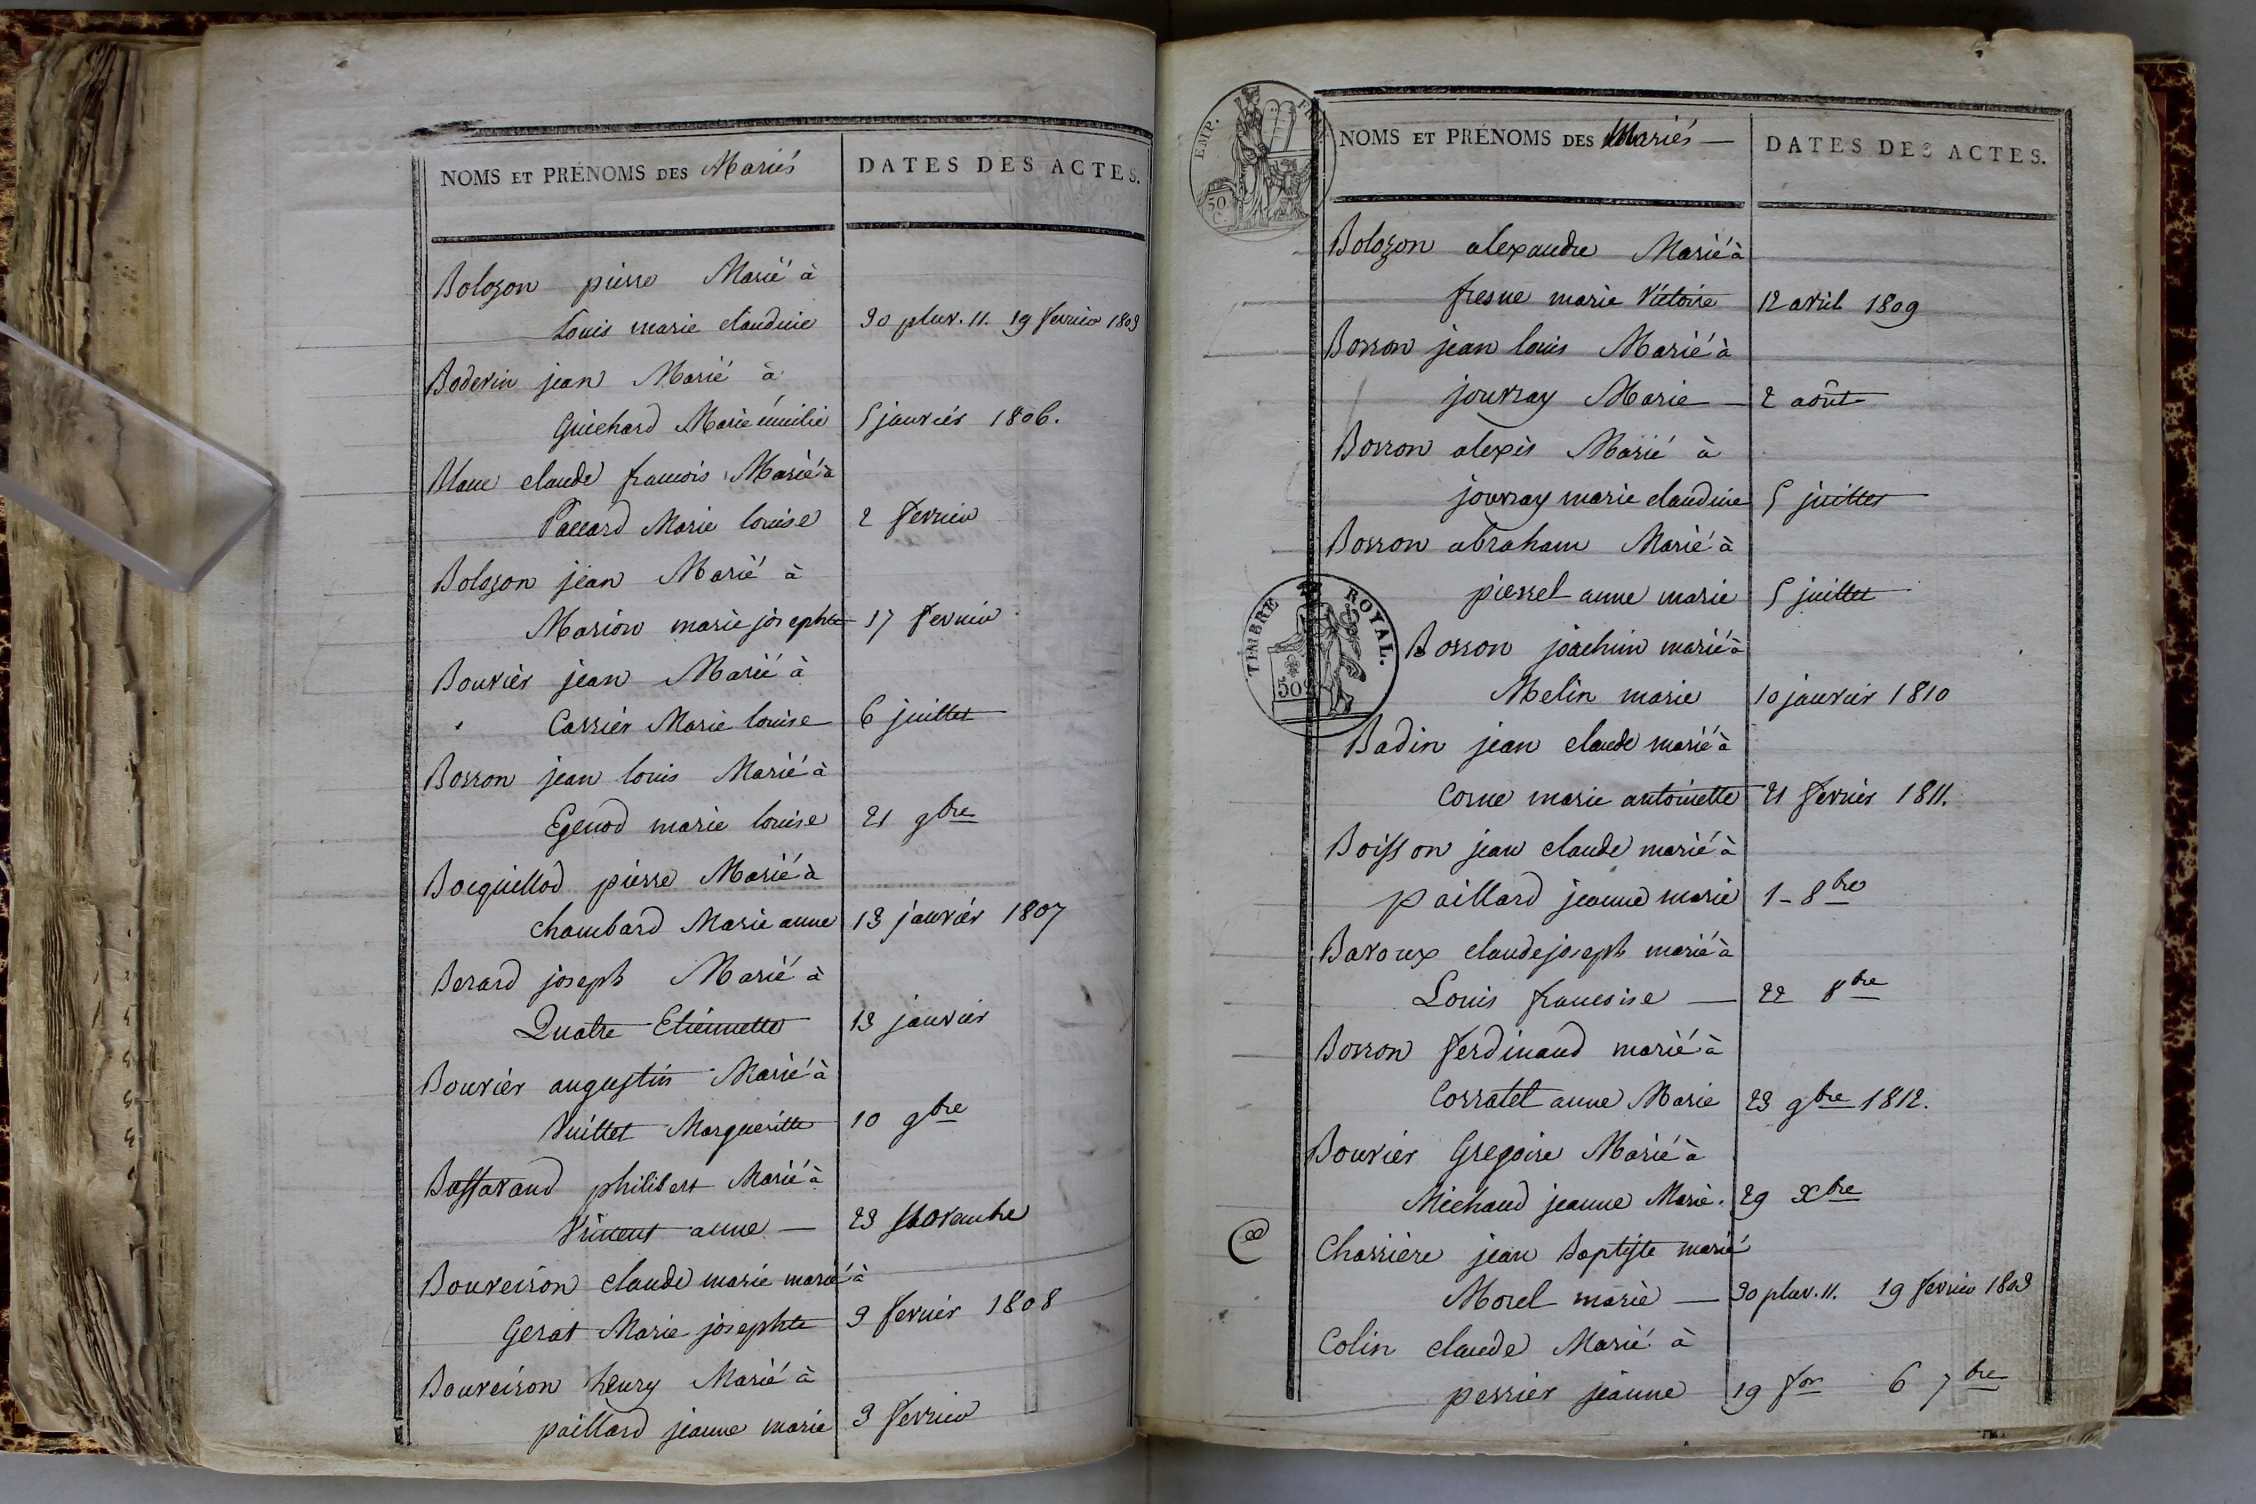 NOMS ET PRÉNOMS DES Mariés
DATES DES ACTES.
Bolozon pierre Marié à
Louis marie claudine 30 pluv. 11. 19 fevrier 1803
Boderin jean Marié à
Guichard Marie émilie 5 janvier 1806.
Blanc claude francois Marié à
Paccard Marie louise 2 fevrier
Bolozon jean Marié à
Marion marie josephte 17 fevrier
Bouvier jean Marié à
Carrier Marie louise 6 juillet
Borron jean louis Marié à
Egenod marie louise 21 9bre
Bocquillod pierre Marié à
Chambard Marie anne 13 janvier 1807
Berard joseph Marié à
Quatre Etiennette 13 janvier
Bouvier augustin Marié à
Vuillet Margueritte 10 9bre
Bassavand philibert Marié à
Vincent anne 23 Novembre
Bouveiron claude marie marié à
Gerat Marie josephte 9 fevrier 1808
Bouveiron henry Marié à
paillard jeanne marie 9 fevrier
EMP.
50
C.
NOMS ET PRÉNOMS DES Mariés
DATES DES ACTES.
Bolozon alexandre Marié à
fresne marie Victoire 12 avril 1809
Borron jean louis Marié à
jouvray Marie 2 août
Borron alexis Marié à
jouvray marie claudine 5 juillet
Borron abraham Marié à
pierrel anne marie 5 juillet
TIMBRE ROYAL.
50
Borron joachim marié à
Melin marie 10 janvier 1810
Badin jean claude marié à
Corne marie antoinette 21 fevrier 1811.
Boisson jean claude marié à
paillard jeanne marie 1 - 8bre
Baroux claude joseph marié à
Louis francoise 22 8bre
Borron ferdinand marié à
Corratel anne Marie 23 9bre 1812.
Bouvier Gregoire Marié à
Michaud jeanne Marie. 29 Xbre
C Charrière jean Baptiste marié
Morel marie 30 pluv. 11. 19 fevrier 1803
Colin claude Marié à
perrier jeanne 19 for 6 7bre